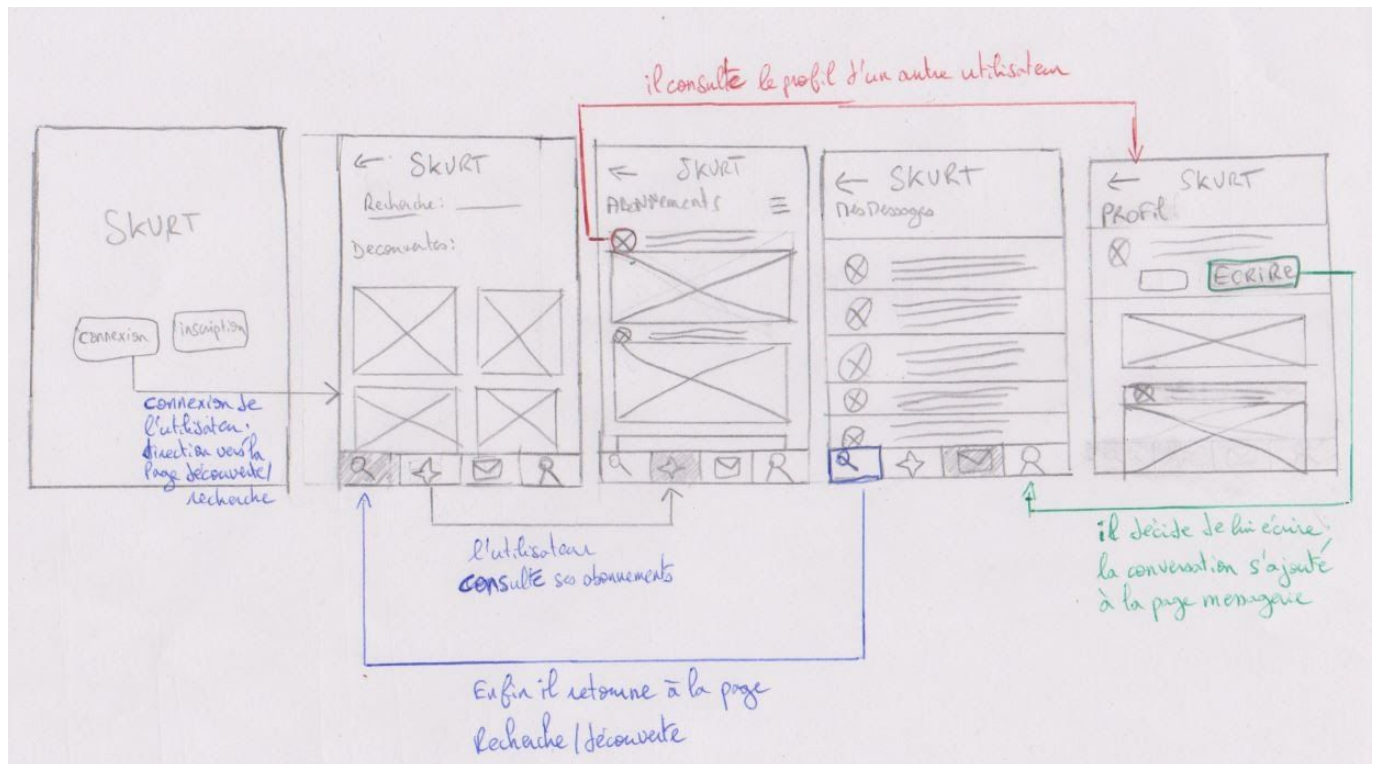 il consulte le profil d'un autre utilisateur
SKURT
connexion
inscription
connexion de
l'utilisateur.
direction vers la
Page découverte/
recherche
← SKURT
Recherche:
Decouvertes:
← SKURT
ABONNements
← SKURT
Mes Messages
← SKURT
PROFIL
ECRIRE
l'utilisateur
consulte ses abonnements
il décide de lui écrire
la conversation s'ajoute
à la page messagerie
Enfin il retourne à la page
Recherche/découverte